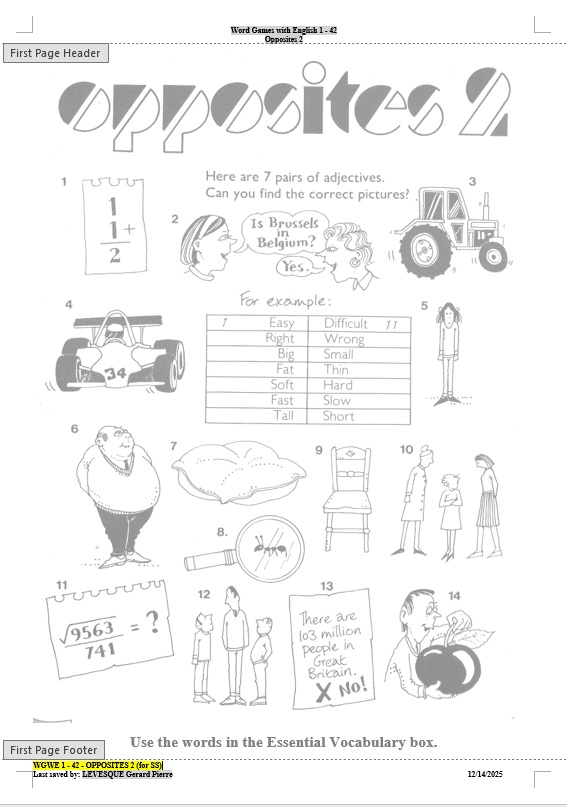 Word Games with English 1 - 42
Opposites 2
First Page Header
opposites 2
Here are 7 pairs of adjectives.
Can you find the correct pictures?
1
1
1+
2
2
Is Brussels
in
Belgium?
Yes.
3
4
34
For example:
1 Easy Difficult 11
Right Wrong
Big Small
Fat Thin
Soft Hard
Fast Slow
Tall Short
5
6
7
8.
9
10
11
√9563 = ?
741
12
13
There are
103 million
people in
Great
Britain.
X No!
14
Use the words in the Essential Vocabulary box.
First Page Footer
WGWE 1 - 42 - OPPOSITES 2 (for SS)
Last saved by: LEVESQUE Gerard Pierre 12/14/2025